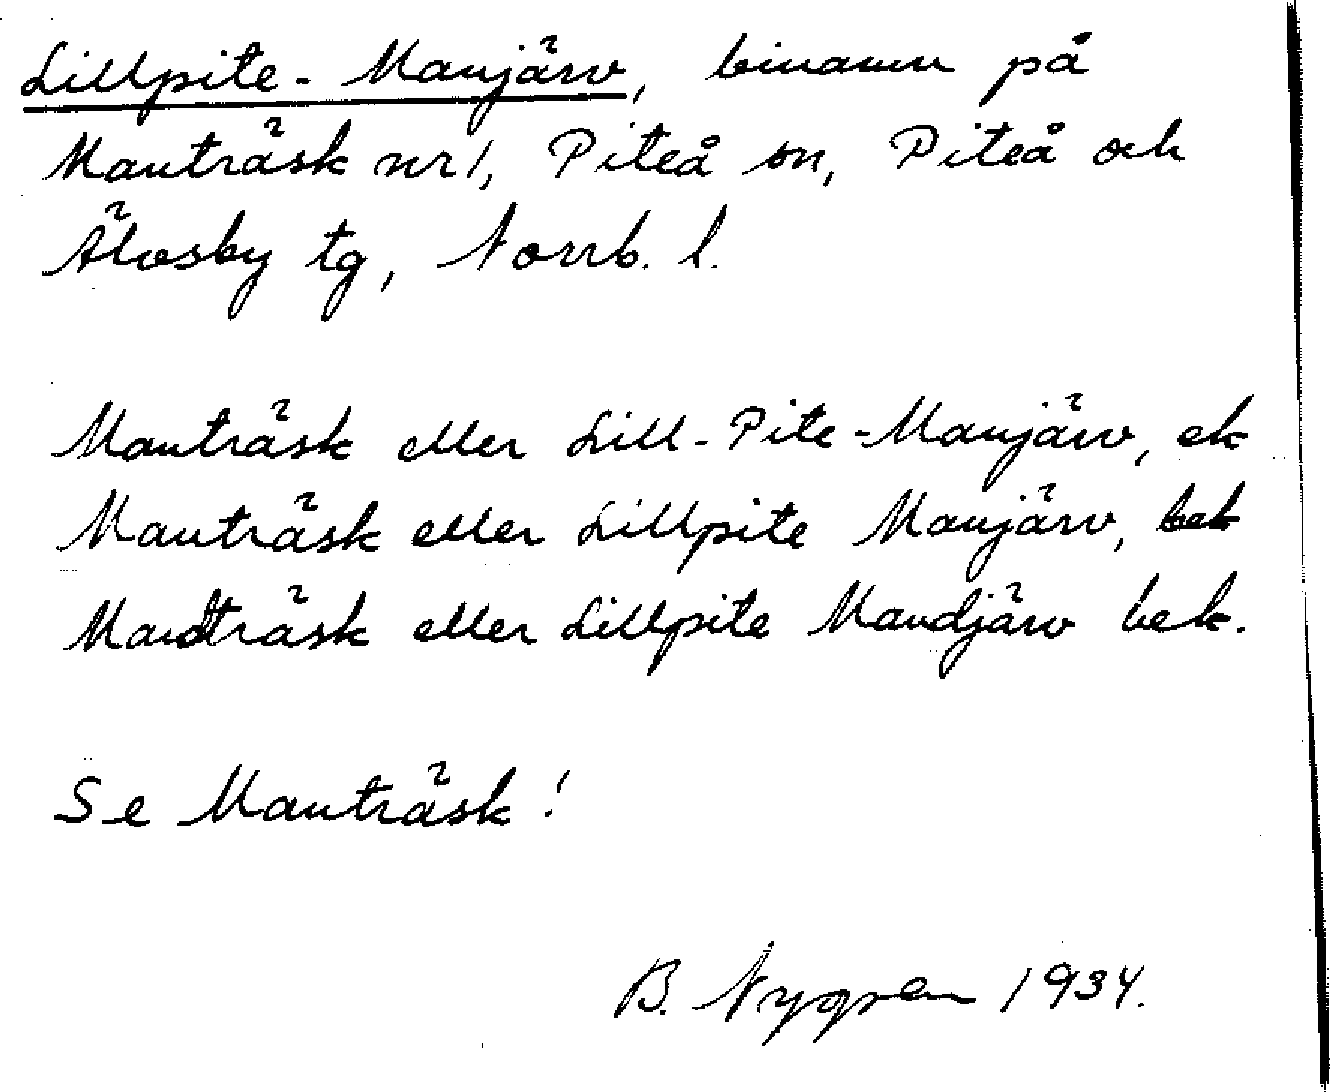 Lillpite-Manjärv, binamn på
Manträsk nr 1, Piteå sn, Piteå och
Älvsby tg, Norrb. l.
Manträsk eller Lill-Pite-Manjärv, ek
Manträsk eller Lillpite Manjärv, bek
Mandträsk eller Lillpite Mandjärv bek.
Se Manträsk!
B. Nygren 1934.